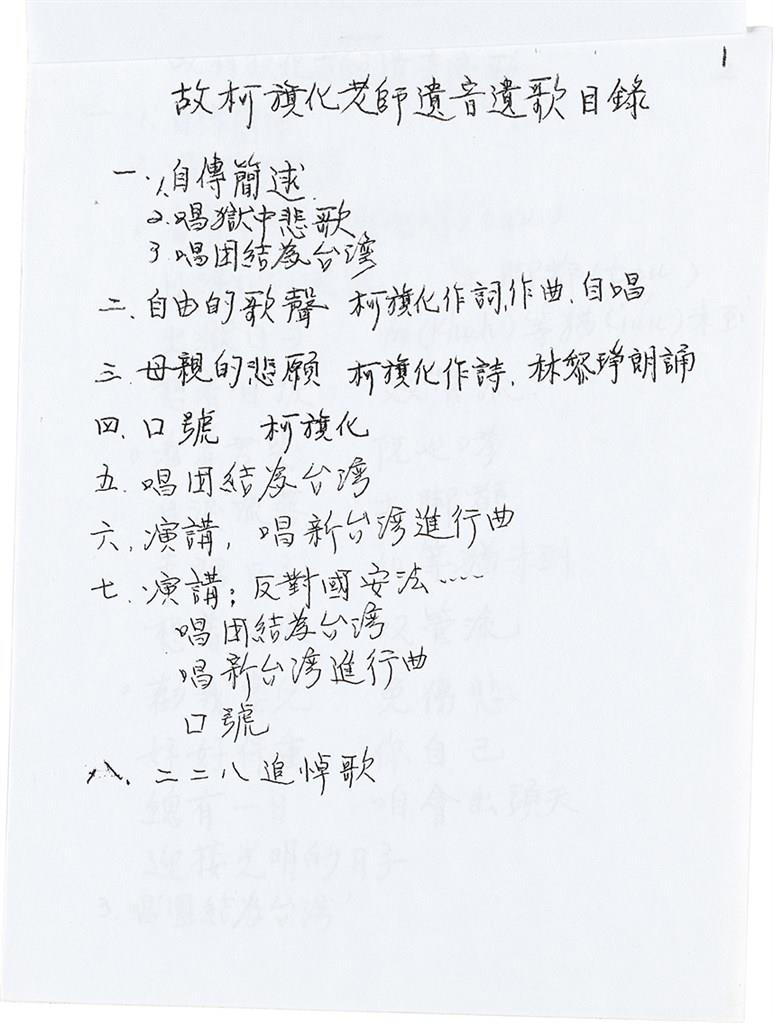 1
故柯旗化老師遺音遺歌目錄
一、1.自傳簡述
2.唱獄中悲歌
3.唱団結為台湾
二、自由的歌聲 柯旗化作詞、作曲、自唱
三、母親的悲願 柯旗化作詩、林黎琤朗誦
四、口號 柯旗化
五、唱団結為台湾
六、演講，唱新台湾進行曲
七、演講；反對國安法……
唱団結為台湾
唱新台湾進行曲
口號
八、二二八追悼歌